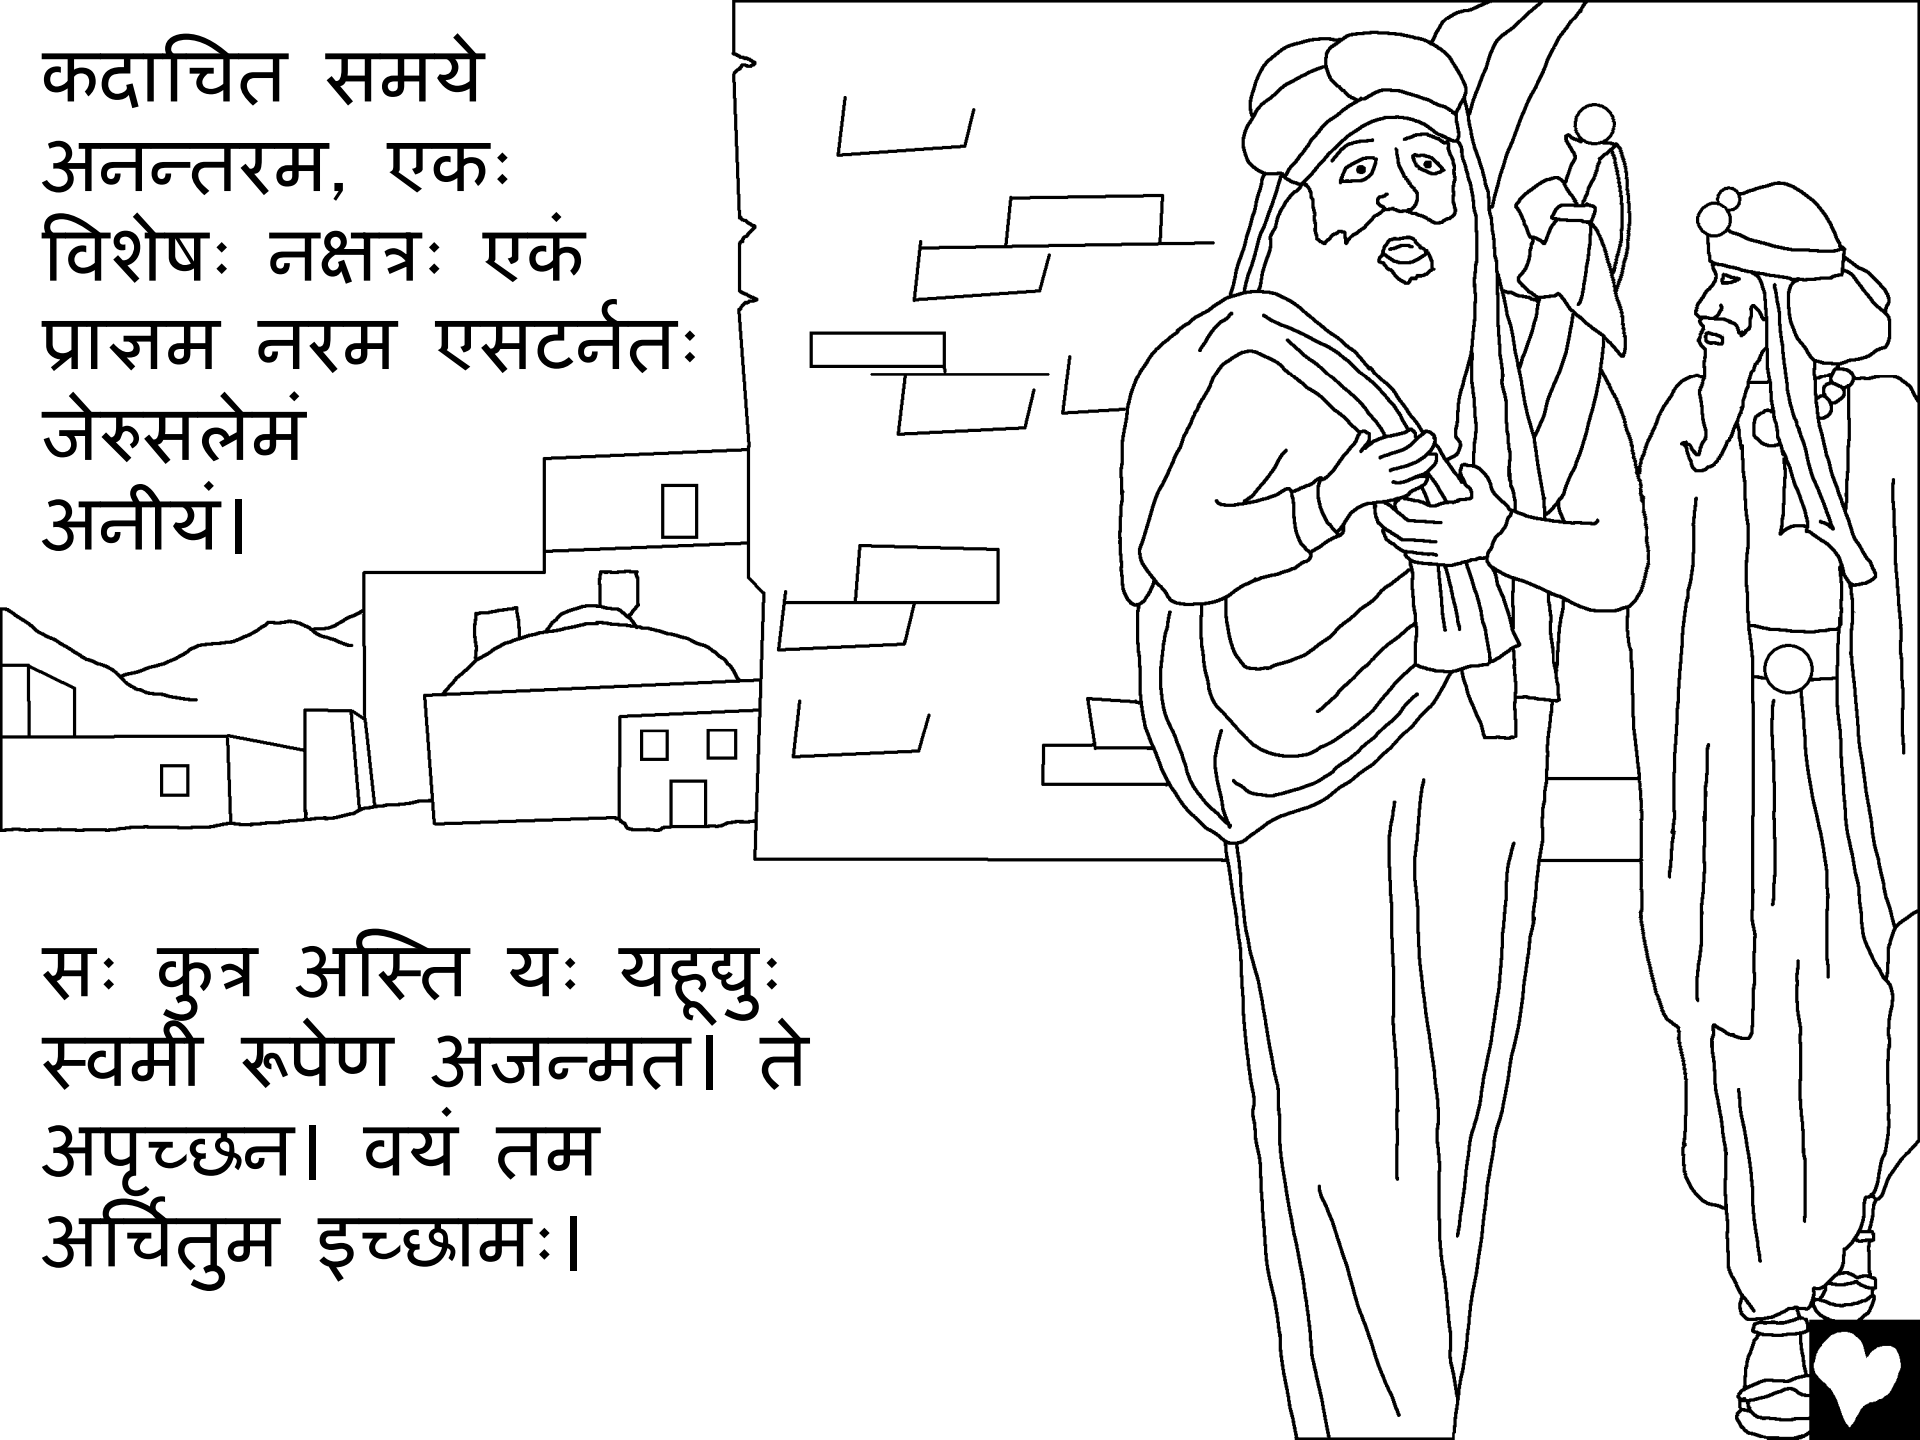 कदाचित समये
अनन्तरम, एकः
विशेषः नक्षत्रः एकं
प्राज्ञम नरम एसटर्नतः
जेरुसलेमं
अनीयं।
सः कुत्र अस्ति यः यहूद्युः
स्वमी रूपेण अजन्मत। ते
अपृच्छन। वयं तम
अर्चितुम इच्छामः।